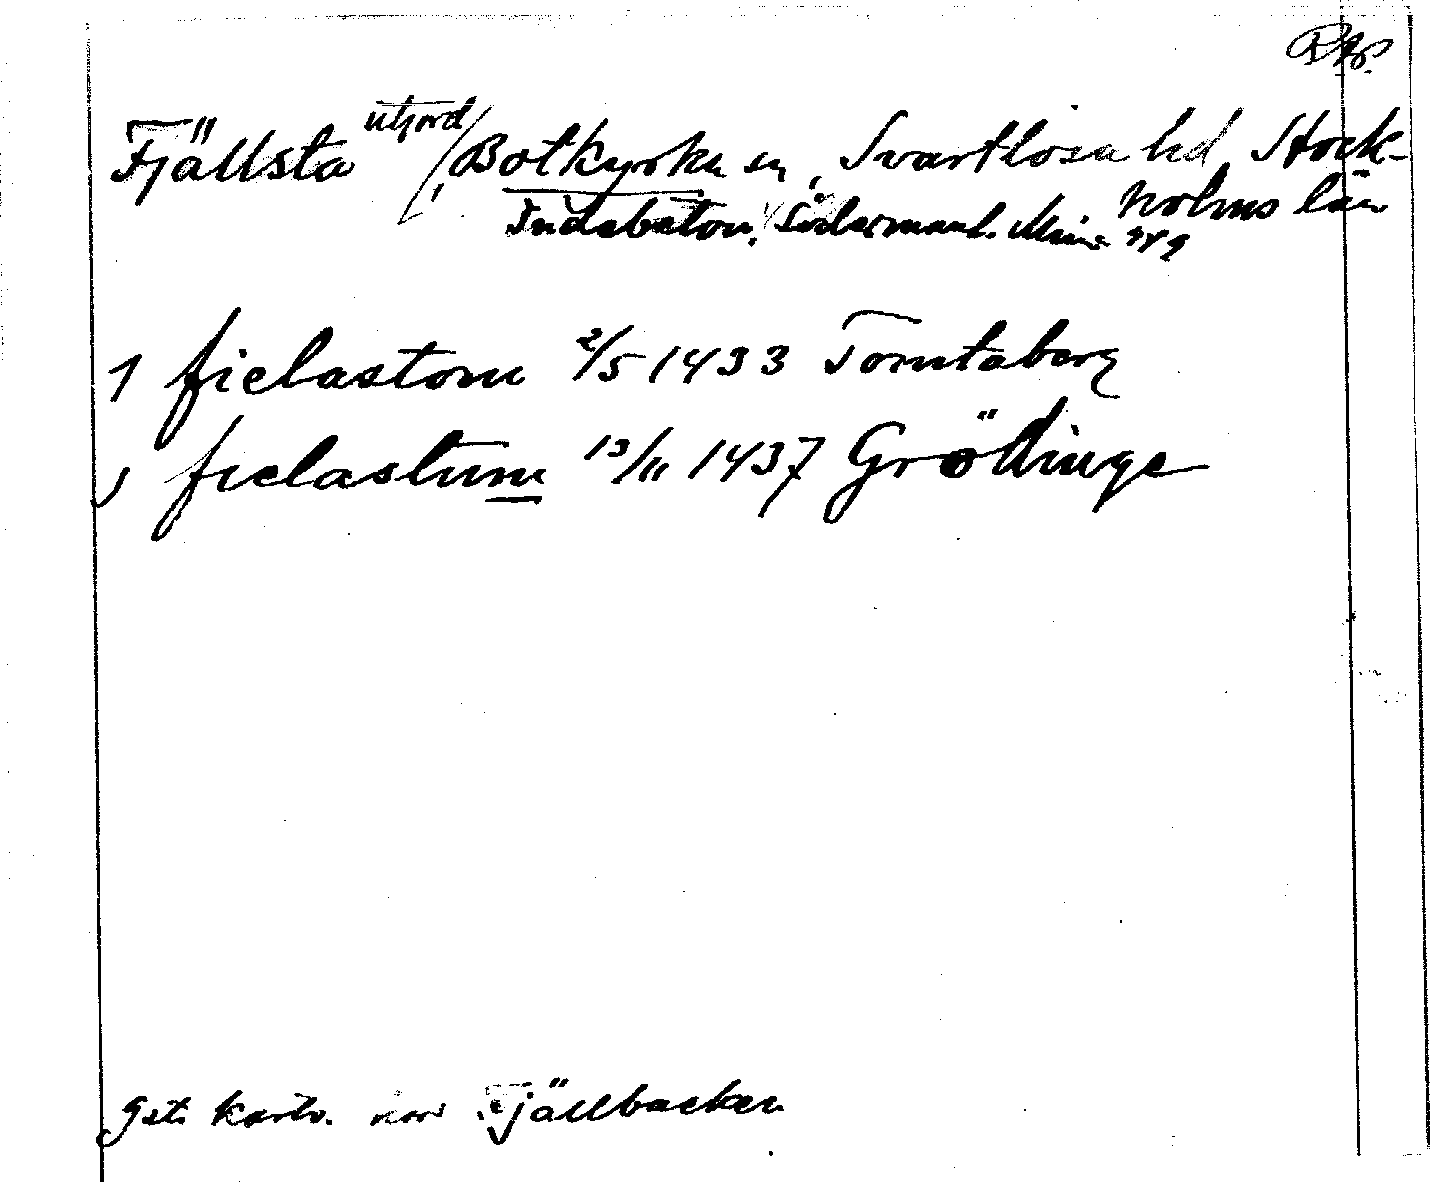 Fjällsta utjord, Botkyrka sn, Svartlösa hd, Stock-
holms län
Indebetou, Södermanl. Minn
1 fielastom 2/5 1433 Tomtaberg
fielastum 13/11 1437 Grödinge
Gst. kartv. nor Fjällbacken